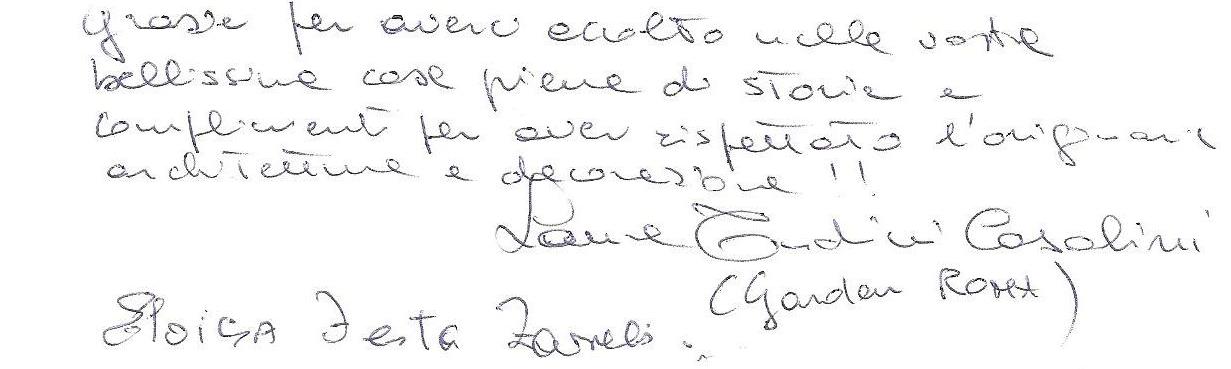 grazie per averci accolto nella vostra
bellissima casa piena di storia e
complimenti per aver rispettato l'originaria
architettura e decorazione !!
Laura Casolini
(Garden ROMA)
Eloisa Testa